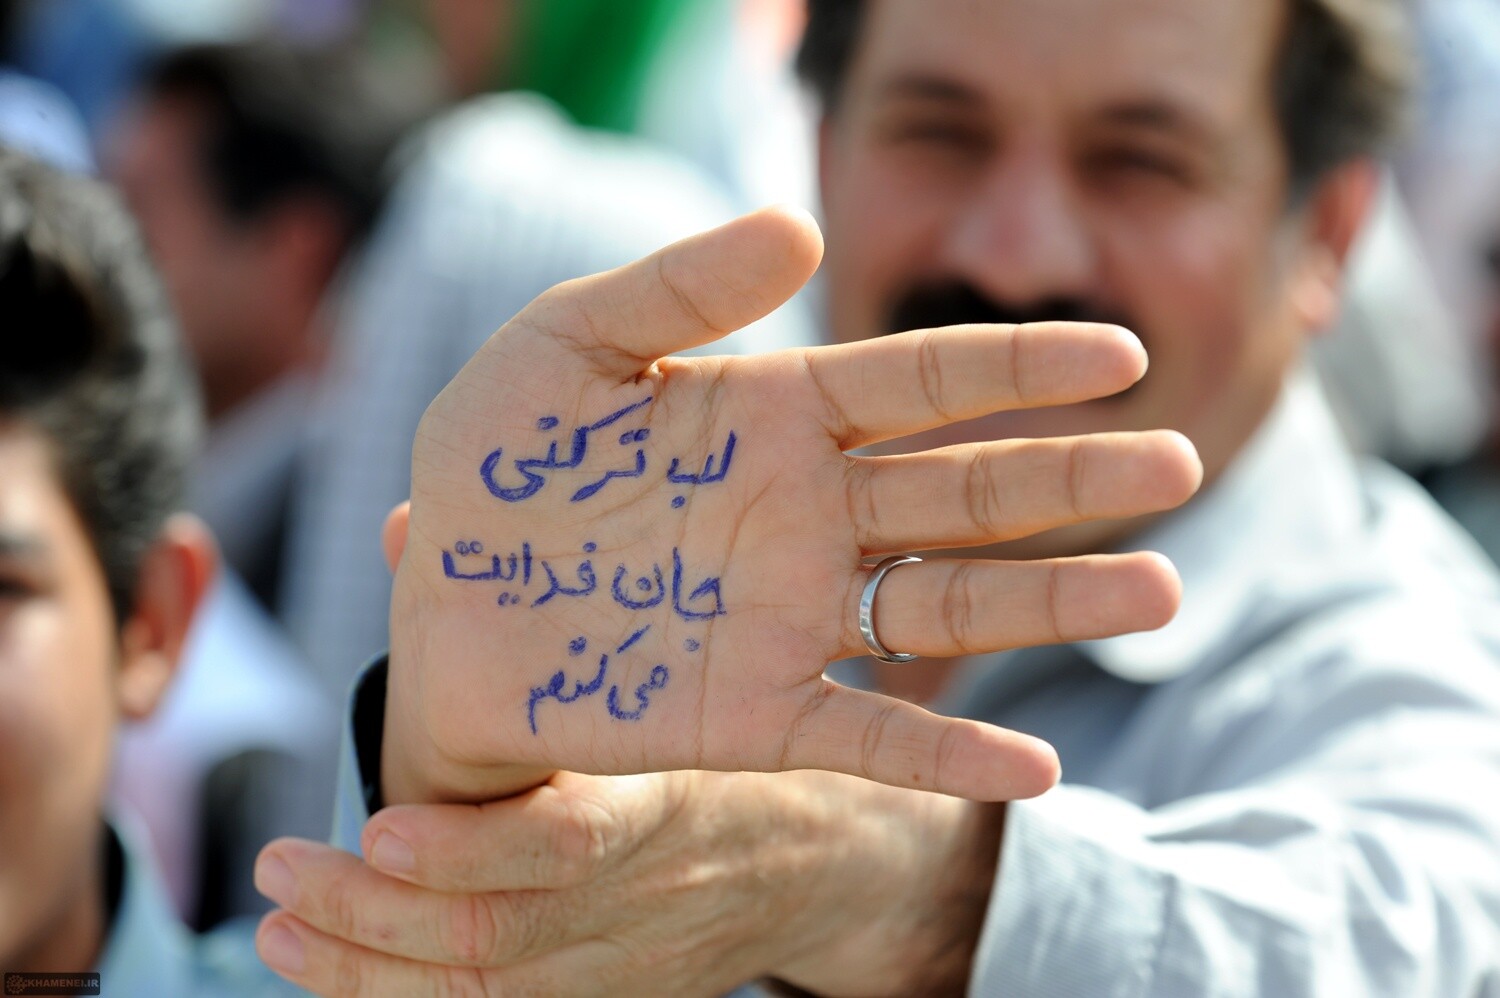 لب تر کنی
جان فدایت
می کنم
KHAMENEI.IR